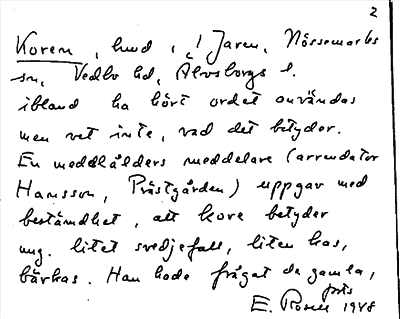 2
Korem, hmd i ! Jaren, Nössemarks
sn, Vedbo hd, Älvsborgs l.
ibland ha hört ordet användas
men vet inte, vad det betyder.
En meddelare (arrendator
Hansson, Prästgården) uppgav med
bestämdhet, att kore betyder
ung. litet svedjefall, liten
Han hade frågat de gamla,
E. Rosell 1948